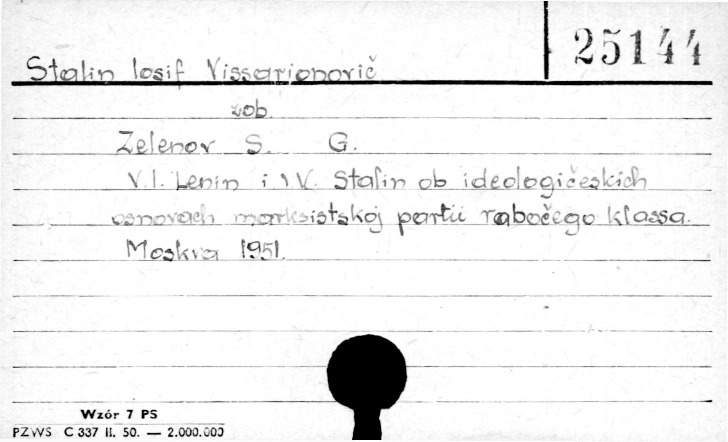 25144
Stalin Iosif Vissarionovič
zob.
Zelenov S. G.
V.I. Lenin i I V. Stalin ob ideologičeskich
osnovach marksistskoj partii rabočego klassa.
Moskva 1951.
Wzór 7 PS
PZWS C 337 II. 50. — 2.000.000